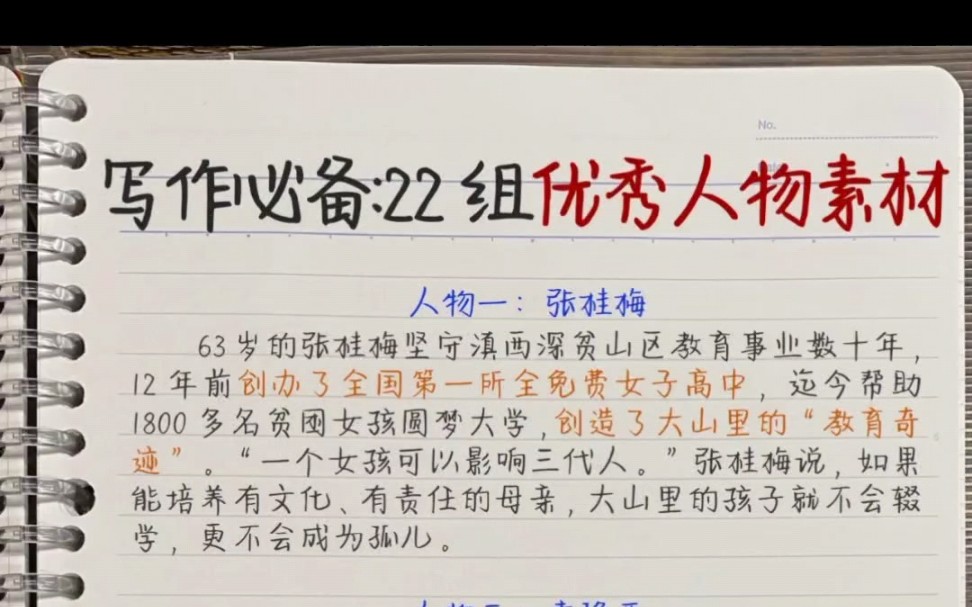 No.
写作必备:22组优秀人物素材
人物一：张桂梅
63岁的张桂梅坚守滇西深贫山区教育事业数十年，
12年前创办了全国第一所全免费女子高中，迄今帮助
1800多名贫困女孩圆梦大学，创造了大山里的“教育奇
迹”。“一个女孩可以影响三代人。”张桂梅说，如果
能培养有文化、有责任的母亲，大山里的孩子就不会辍
学，更不会成为孤儿。